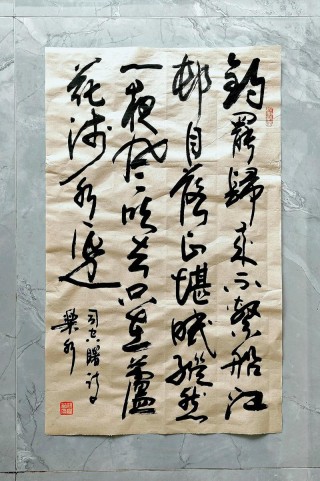 釣罷歸來不繫船江
邨月落正堪眠縱然
一夜風吹去只在蘆
花淺水邊
司空曙詩